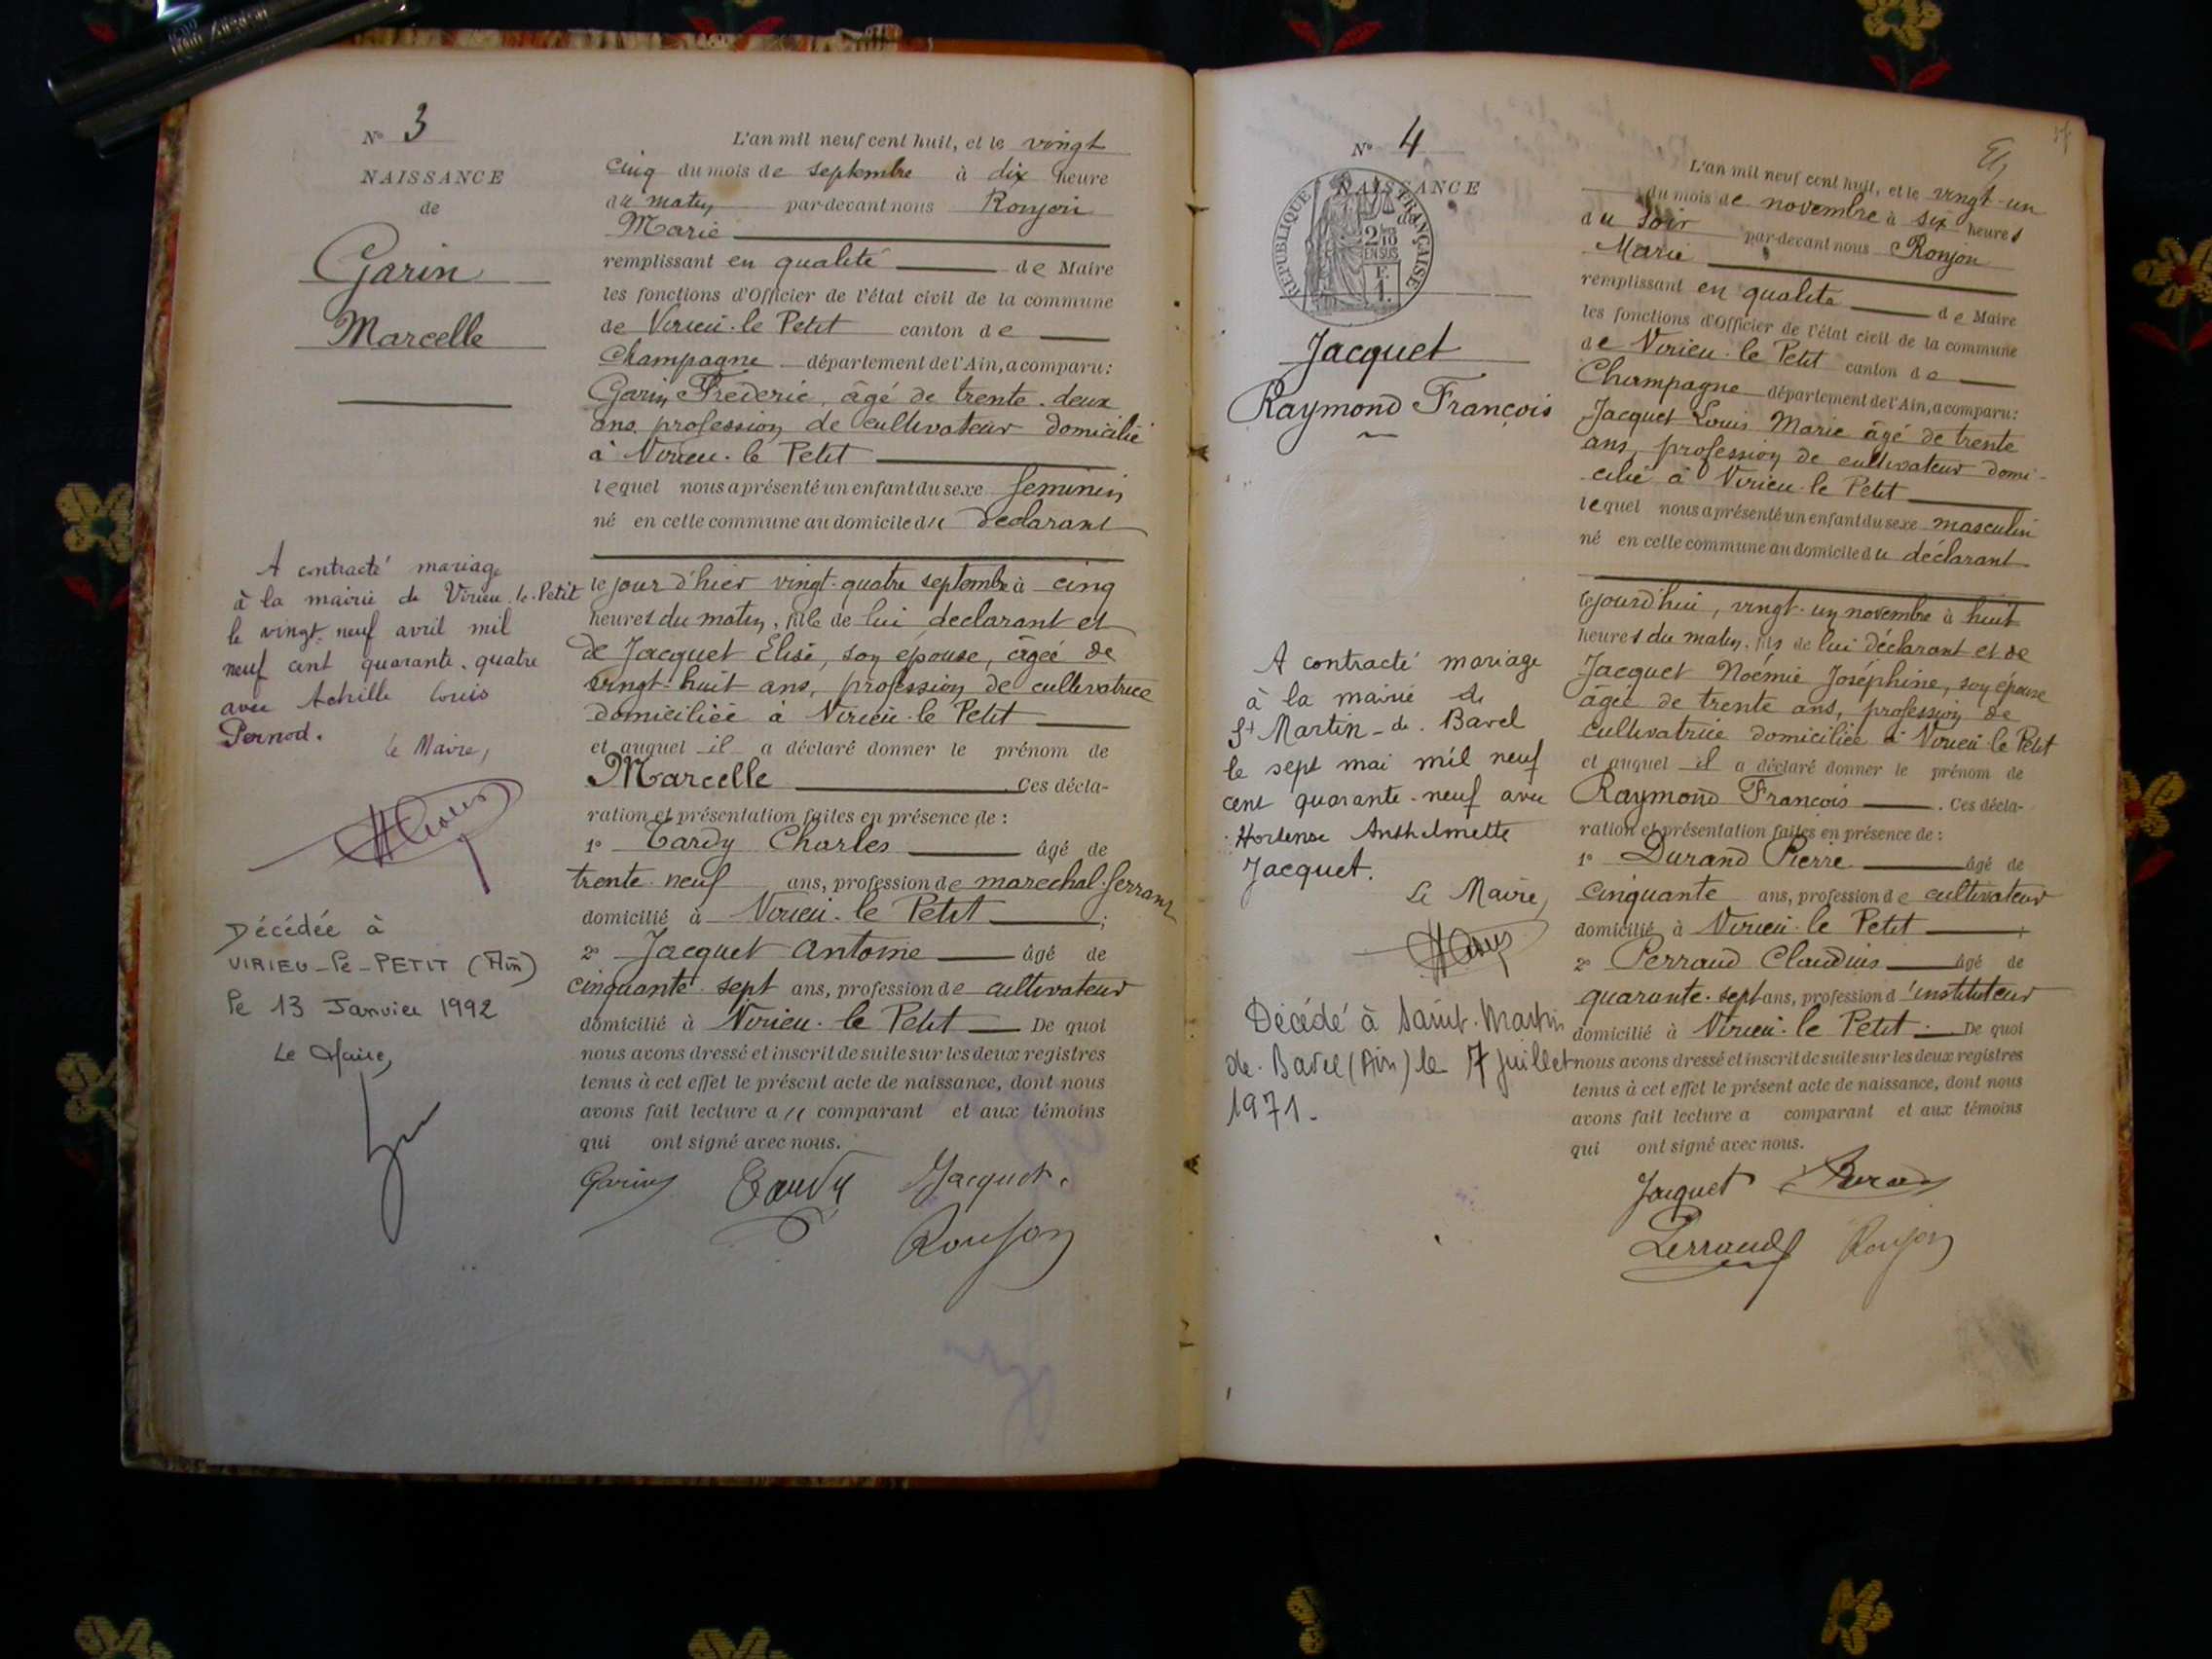 N° 3
NAISSANCE
de
Garin
Marcelle
A contracté mariage
à la mairie de Virieu-le-Petit
le vingt-neuf avril mil
neuf cent quarante-quatre
avec Achille Louis
Pernod.
Le Maire,
Décédée à
VIRIEU-le-PETIT (Ain)
le 13 Janvier 1992
Le Maire,
L'an mil neuf cent huit, et le vingt
cinq du mois de septembre à dix heure
du matin par-devant nous Ronjon
Marie
remplissant en qualité de Maire
les fonctions d'Officier de l'état civil de la commune
de Virieu-le Petit canton de
Champagne département de l'Ain, a comparu:
Garin Frédéric, âgé de trente-deux
ans profession de cultivateur domicilié
à Virieu-le Petit
lequel nous a présenté un enfant du sexe feminin
né en cette commune au domicile du declarant
le jour d'hier vingt-quatre septembre à cinq
heures du matin, fille de lui declarant et
de Jacquet Elise, son épouse, âgée de
vingt-huit ans, profession de cultivatrice
domiciliée à Virieu-le Petit
et auquel il a déclaré donner le prénom de
Marcelle . Ces décla-
ration et présentation faites en présence de :
1° Tardy Charles âgé de
trente-neuf ans, profession de marechal-ferrant
domicilié à Virieu-le Petit ;
2° Jacquet Antoine âgé de
cinquante-sept ans, profession de cultivateur
domicilié à Virieu-le Petit De quoi
nous avons dressé et inscrit de suite sur les deux registres
tenus à cet effet le présent acte de naissance, dont nous
avons fait lecture au comparant et aux témoins
qui ont signé avec nous.
Garin Tardy Jacquet
Ronjon
N° 4
NAISSANCE
de
RÉPUBLIQUE FRANÇAISE
2/10
EN SUS
F.
1.
Jacquet
Raymond François
A contracté mariage
à la mairie de
St Martin-de-Bavel
le sept mai mil neuf
cent quarante-neuf avec
Hortense Anthelmette
Jacquet.
Le Maire,
Décédé à Saint-Martin
de-Bavel (Ain) le 7 juillet
1971.
L'an mil neuf cent huit, et le vingt-un
du mois de novembre à six heures
du soir par-devant nous Ronjon
Marie
remplissant en qualité de Maire
les fonctions d'Officier de l'état civil de la commune
de Virieu-le Petit canton de
Champagne département de l'Ain, a comparu:
Jacquet Louis Marie âgé de trente
ans, profession de cultivateur domi-
cilié à Virieu-le Petit
lequel nous a présenté un enfant du sexe masculin
né en cette commune au domicile du déclarant
cejourd'hui, vingt-un novembre à huit
heures du matin, fils de lui déclarant et de
Jacquet Noémie Joséphine, son épouse
âgée de trente ans, profession de
cultivatrice domiciliée à Virieu-le Petit
et auquel il a déclaré donner le prénom de
Raymond François . Ces décla-
ration et présentation faites en présence de :
1° Durand Pierre âgé de
cinquante ans, profession de cultivateur
domicilié à Virieu-le Petit ;
2° Perraud Claudius âgé de
quarante-sept ans, profession d'instituteur
domicilié à Virieu-le Petit. De quoi
nous avons dressé et inscrit de suite sur les deux registres
tenus à cet effet le présent acte de naissance, dont nous
avons fait lecture a comparant et aux témoins
qui ont signé avec nous.
Jacquet Durand
Perraud Ronjon